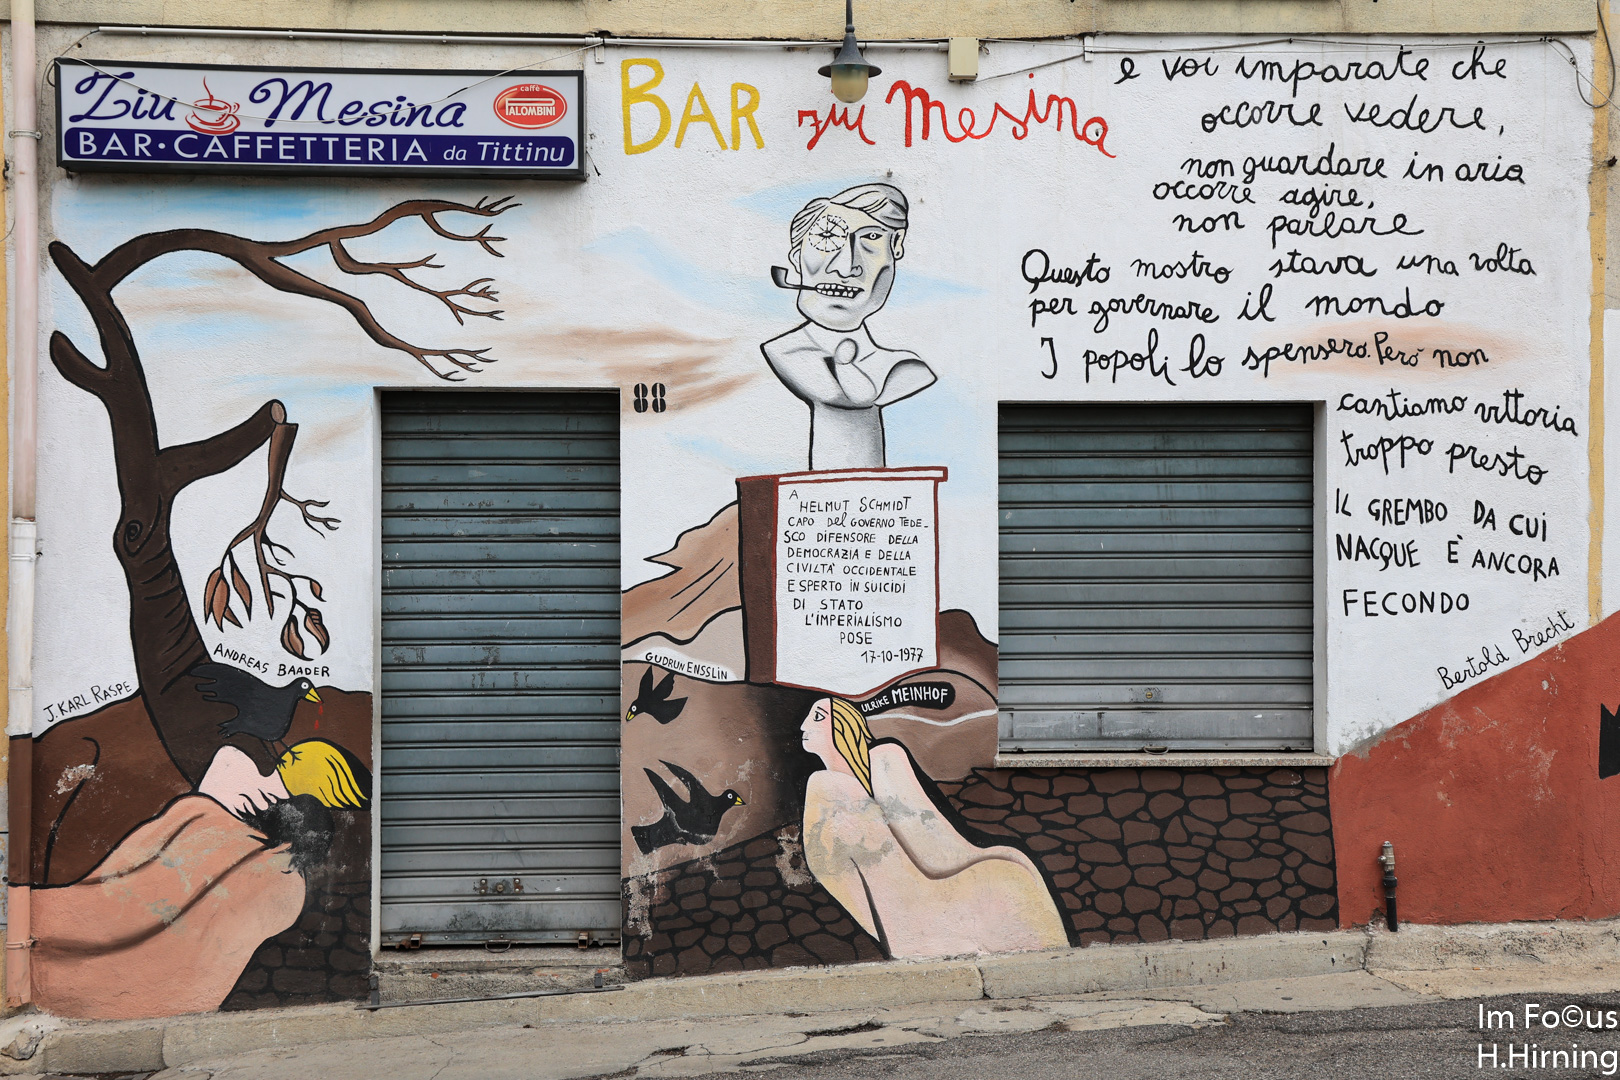 Ziu Mesina
caffè
PALOMBINI
BAR·CAFFETTERIA da Tittinu
BAR ziu Mesina
e voi imparate che
occorre vedere,
non guardare in aria
occorre agire,
non parlare
Questo mostro stava una volta
per governare il mondo
I popoli lo spensero. Però non
cantiamo vittoria
troppo presto
IL GREMBO DA CUI
NACQUE È ANCORA
FECONDO
Bertold Brecht
88
A
HELMUT SCHMIDT
CAPO del GOVERNO TEDE-
SCO DIFENSORE DELLA
DEMOCRAZIA E DELLA
CIVILTA' OCCIDENTALE
ESPERTO IN SUICIDI
DI STATO
L'IMPERIALISMO
POSE
17-10-1977
ANDREAS BAADER
J. KARL RASPE
GUDRUN ENSSLIN
ULRIKE MEINHOF
Im Fo©us
H.Hirning